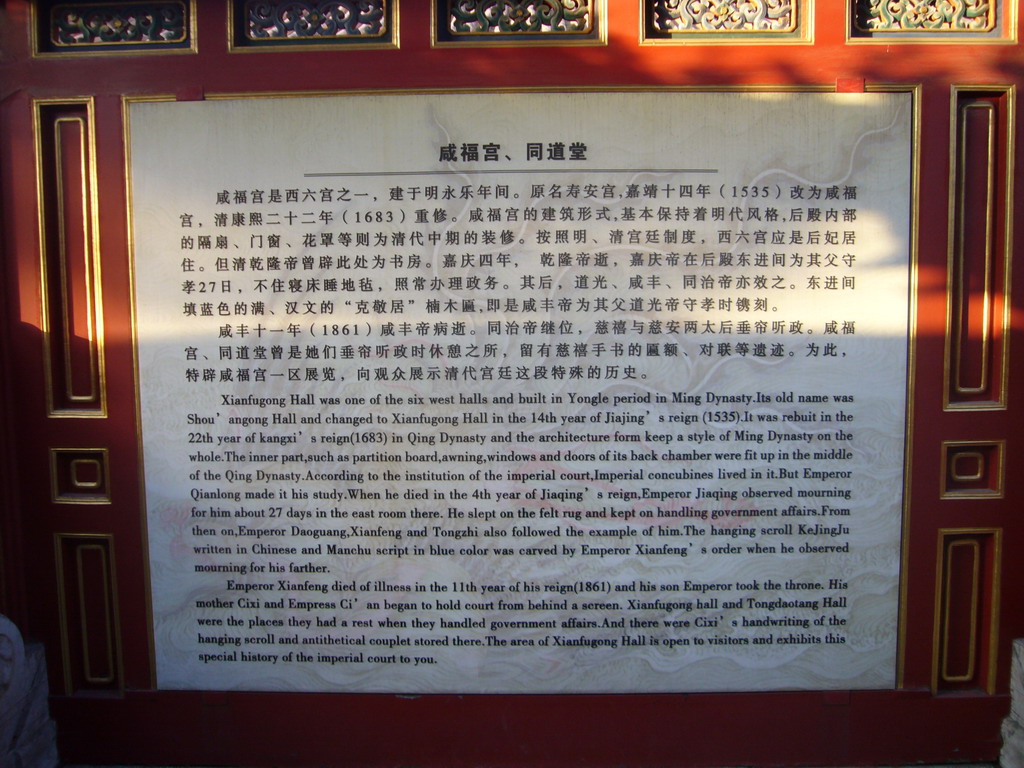 咸福宫、同道堂
咸福宫是西六宫之一，建于明永乐年间。原名寿安宫,嘉靖十四年（1535）改为咸福
宫，清康熙二十二年（1683）重修。咸福宫的建筑形式,基本保持着明代风格,后殿内部
的隔扇、门窗、花罩等则为清代中期的装修。按照明、清宫廷制度，西六宫应是后妃居
住。但清乾隆帝曾辟此处为书房。嘉庆四年， 乾隆帝逝，嘉庆帝在后殿东进间为其父守
孝27日，不住寝床睡地毡，照常办理政务。其后，道光、咸丰、同治帝亦效之。东进间
填蓝色的满、汉文的“克敬居”楠木匾,即是咸丰帝为其父道光帝守孝时镌刻。
咸丰十一年（1861）咸丰帝病逝。同治帝继位，慈禧与慈安两太后垂帘听政。咸福
宫、同道堂曾是她们垂帘听政时休憩之所，留有慈禧手书的匾额、对联等遗迹。为此，
特辟咸福宫一区展览，向观众展示清代宫廷这段特殊的历史。
Xianfugong Hall was one of the six west halls and built in Yongle period in Ming Dynasty.Its old name was
Shou’ angong Hall and changed to Xianfugong Hall in the 14th year of Jiajing’ s reign (1535).It was rebuit in the
22th year of kangxi’ s reign(1683) in Qing Dynasty and the architecture form keep a style of Ming Dynasty on the
whole.The inner part,such as partition board,awning,windows and doors of its back chamber were fit up in the middle
of the Qing Dynasty.According to the institution of the imperial court,Imperial concubines lived in it.But Emperor
Qianlong made it his study.When he died in the 4th year of Jiaqing’ s reign,Emperor Jiaqing observed mourning
for him about 27 days in the east room there. He slept on the felt rug and kept on handling government affairs.From
then on,Emperor Daoguang,Xianfeng and Tongzhi also followed the example of him.The hanging scroll KeJingJu
written in Chinese and Manchu script in blue color was carved by Emperor Xianfeng’ s order when he observed
mourning for his farther.
Emperor Xianfeng died of illness in the 11th year of his reign(1861) and his son Emperor took the throne. His
mother Cixi and Empress Ci’ an began to hold court from behind a screen. Xianfugong hall and Tongdaotang Hall
were the places they had a rest when they handled government affairs.And there were Cixi’ s handwriting of the
hanging scroll and antithetical couplet stored there.The area of Xianfugong Hall is open to visitors and exhibits this
special history of the imperial court to you.